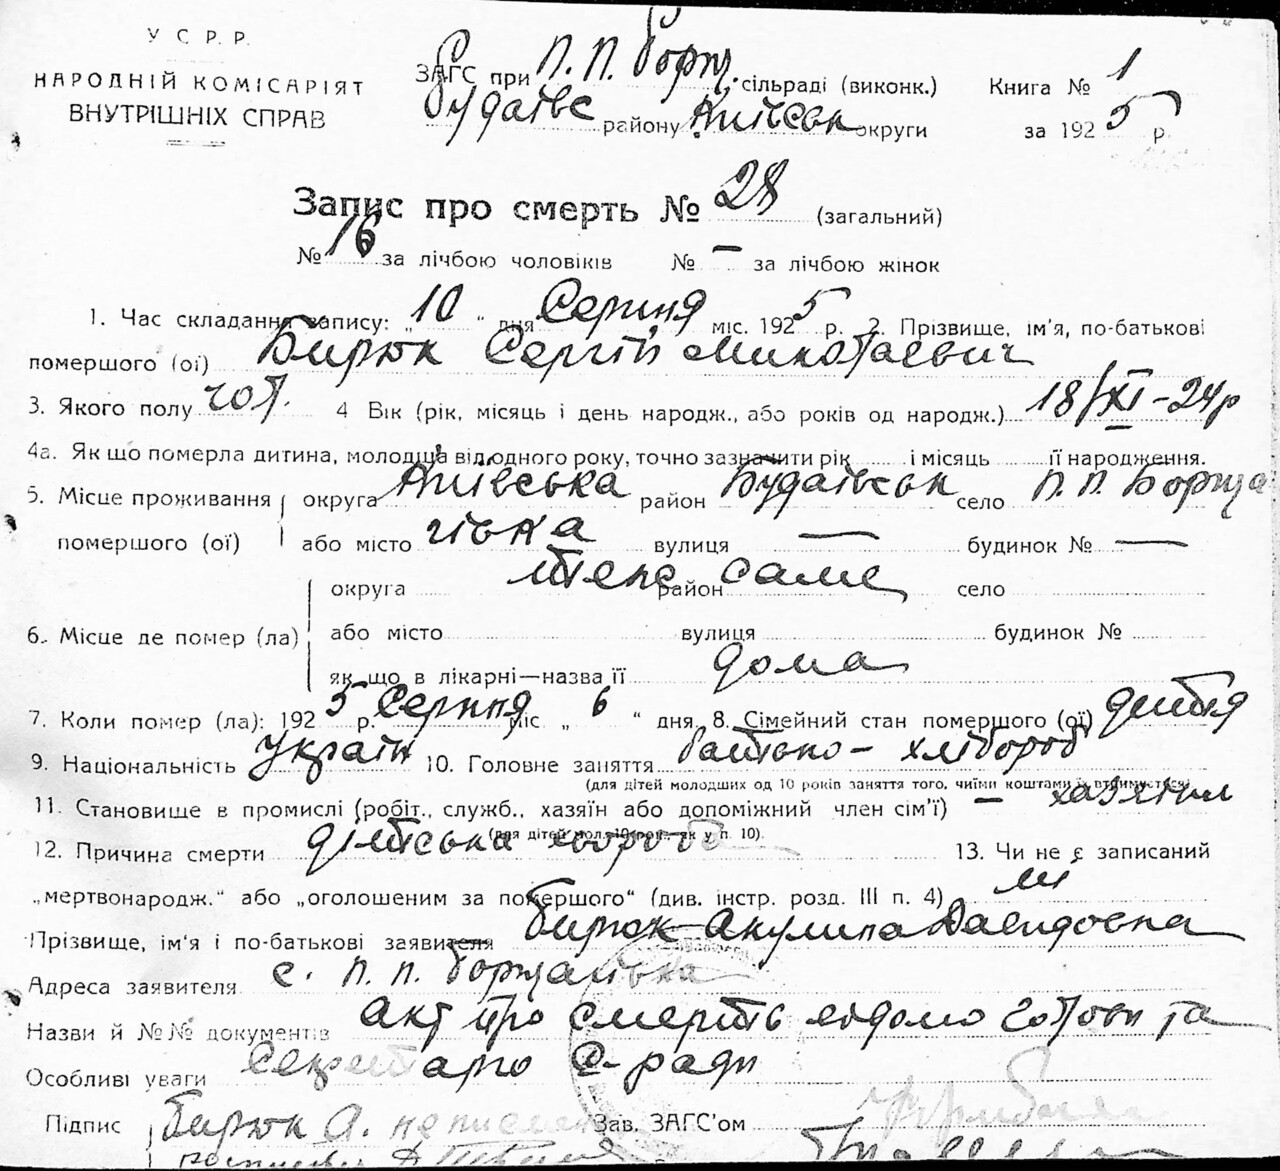 У С Р. Р.
НАРОДНІЙ КОМІСАРІЯТ
ВНУТРІШНІХ СПРАВ
ЗАГС при П. П. Борщ. сільраді (виконк.)
Будаївс району Київськ округи
Книга № 1
за 1925 р.
Запис про смерть № 28 (загальний)
№ 16 за лічбою чоловіків № — за лічбою жінок
1. Час складання запису: „10“ дня Серпня міс. 1925 р. 2. Прізвище, ім'я, по-батькові
помершого (ої) Бирюк Сергій Миколаевич
3. Якого полу чол. 4 Вік (рік, місяць і день народж., або років од народж.) 18/XI-24р
4а. Як що померла дитина, молодша від одного року, точно зазначити рік і місяць її народження.
5. Місце проживання помершого (ої) округа Київська район Будаївськ село П. П. Борща
або місто гівка вулиця — будинок № —
6. Місце де помер (ла) округа теж саме район село
або місто вулиця будинок №
як що в лікарні—назва її дома
7. Коли помер (ла): 1925 р. Серпня міс „6“ дня. 8. Сімейний стан помершого (ої) дитя
9. Національність Україн 10. Головне заняття батько - хлібороб
(для дітей молодших од 10 років заняття того, чиїми коштами їх втримується)
11. Становище в промислі (робіт., служб., хазяїн або допоміжний член сім'ї) — хазяїн
(для дітей мол. 10 рок. як у п. 10).
12. Причина смерти дитяська хвороба 13. Чи не є записаний
„мертвонародж.“ або „оголошеним за помершого“ (див. інстр. розд. III п. 4) ні
Прізвище, ім'я і по-батькові заявителя Бирюк Акулина Давидовна
Адреса заявителя с. П. П. Борщагівка
Назви й №№ документів акт про смерть відомо голови та
Особливі уваги Секретарю С-ради
Підпис Бирюк А. неписьмен Зав. ЗАГС'ом